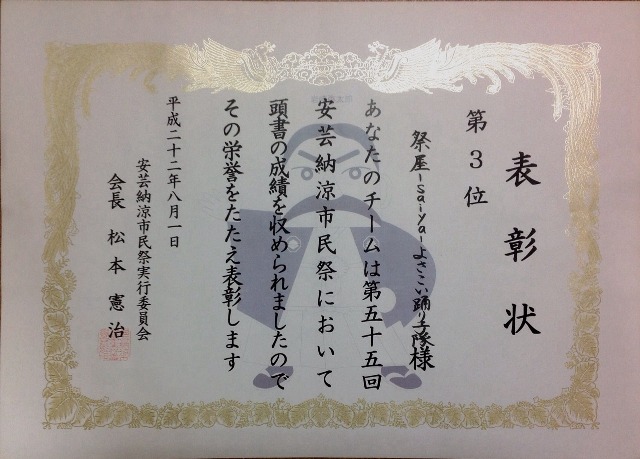 表彰状
第3位
祭屋-saiya-よさこい踊り子隊様
あなたのチームは第五十五回
安芸納涼市民祭において
頭書の成績を収められましたので
その栄誉をたたえ表彰します
平成二十二年八月一日
安芸納涼市民祭実行委員会
会長 松本憲治